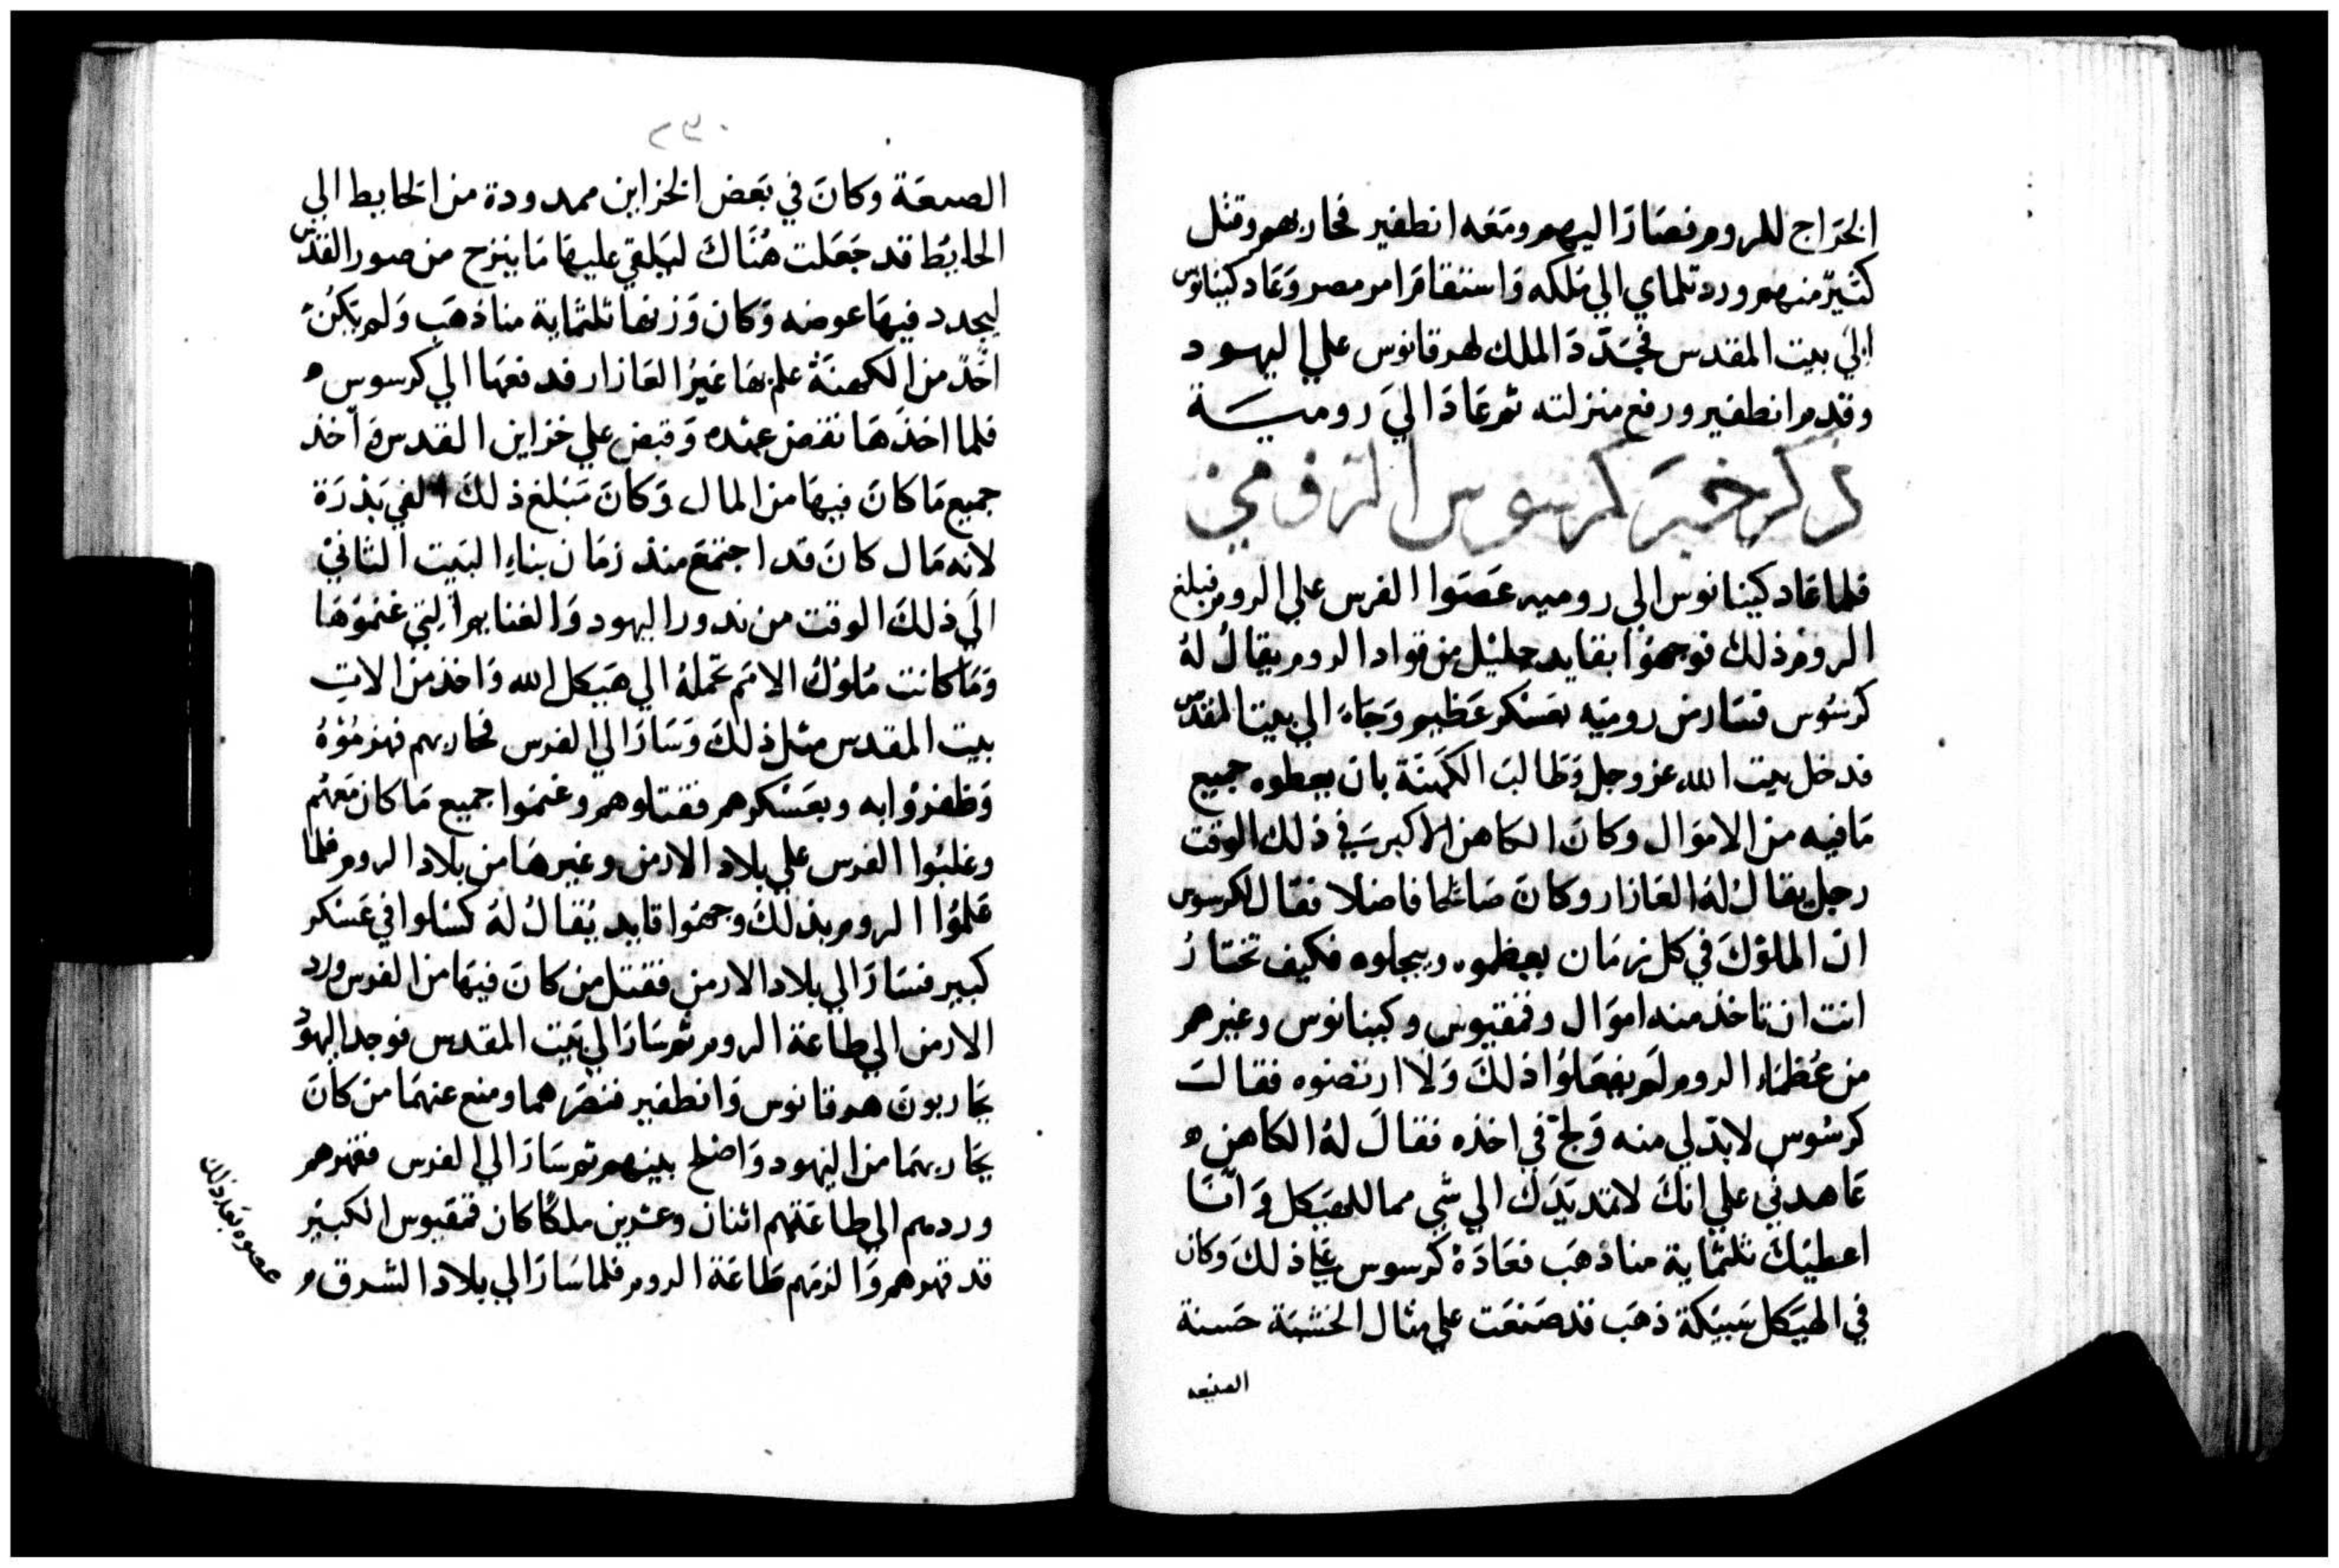 الخَراج للروم فصَارَ اليهم ومَعَه انطفير فحاربهم وقتل
كثيرٌ منهم ورد تلماي الي مُلكه وَاستقامَ امر مصر وَعَاد كينانوس
الي بيت المقدس فجَدّدَ الملك لهرقانوس علي اليهود
وقدم انطفير ورفع منزلته ثم عَادَ اليَ روميَة
ذكر خبر كرسوس الرومي
فلما عَاد كينانوس الي روميه عَصَوا الفرس علي الروم فبلغ
الروم ذلك فوجهوُا بقايد جليْل من قواد الروم يقالُ لهُ
كرسُوس فسَار من روميَه بعَسْكر عَظيم وَجَاءَ الي بيت المقدس
فدخل بيت الله عز وجل وَطَالبَ الكَهنَة بان يعطوه جميع
مَا فيه من الاموَال وكانَ الكاهن الاكبر في ذلك الوقت
رجل يقالُ لهُ العَازار وكانَ صَالحًا فاضلا فقال لكرسوس
انّ الملوْكَ في كل زمَان يعظموه ويبجلوه فكيف تختارُ
انت ان تاخذ منه اموَال وفمقيوس وكينانوس وغيرهم
من عُظمَاء الروم لم يفعَلوُا ذلكَ وَلا ارتضوه فقالتَ
كرسُوس لابدّ لي منه وَلجّ في اخذه فقالَ لهُ الكاهن ه
عَاهدني علي انكَ لا تمد يَدَك الي شي مما للهيَكل وَ انَا
اعطيَكَ ثلثماية منا ذهَب فعَاهَدَهُ كرسوس علي ذلكَ وكان
في الهيَكل سَبيَكة ذهَب قد صَنعَت علي مثال الخشبَة حَسنة
الصنعه
٢٣٠
الصنعَة وكانَ في بَعض الخزاين ممدودة من الحايط الي
الحايُط قد جَعَلت هُنَاكَ ليَلقي عليهَا مَا ينزح من صور القدس
ليجدد فيهَا عوضه وَكان وَزنها ثلثماية منا ذهَب وَلم يَكنْ
احدٌ من الكهنَةُ علم بهَا غيرُ العَازار فدفعَهَا الي كرسوس ه
فلما اخذَهَا نقض عهده وَقبض علي خزاين القدس وَاخذ
جميع مَا كانَ فيهَا من المال وَكانَ مَبْلغ ذلكَ الفي بَدرَة
لانه مَال كانَ قد اجتمَعَ منذ زمَان بناءِ البَيت الثاني
الَي ذلكَ الوقت من ندور اليهود وَالغنايم التي غنمُوهَا
وَمَا كانت مُلوُكُ الامَم تحملهُ الي هَيكل الله وَاخذ من الاتِ
بيت المقدس مثل ذلكَ وَسَارَ الي الفرس فحاربهم فهزموُهُ
وَظفرُوا به وبعَسْكرهم فقتلوهم وغنمَوا جميع مَا كان مَعَهُم
وغلبُوا الفرس علي بلاد الارمن وغيرهَا من بلاد الروم فلما
عَلموُا الروم بذلكَ وجهوُا قايد يُقالُ لهُ كسَلوا في عَسْكر
كبير فسَارَ الي بلاد الارمن فقتل من كانَ فيهَا من الفرس ورد
الارمن الي طاعَة الروم ثم سَارَ الي بَيت المقدس فوجد اليهوُد
يَحاربونَ هرقانوس وَانطفير فنصَرهما ومنع عنهمَا مَن كانَ
يَحاربهمَا من اليَهود وَاصْلح بينهم ثم سَارَ الي الفرس فقهرهم
وردهم الي طاعَتهم اثنان وعشرين ملكًا كان فمقيوس الكبيْر
قد قهرهم وَالزمَهم طَاعَة الروم فلما سَارَ الي بلاد الشرق ه
عصوه بَعَد ذلك